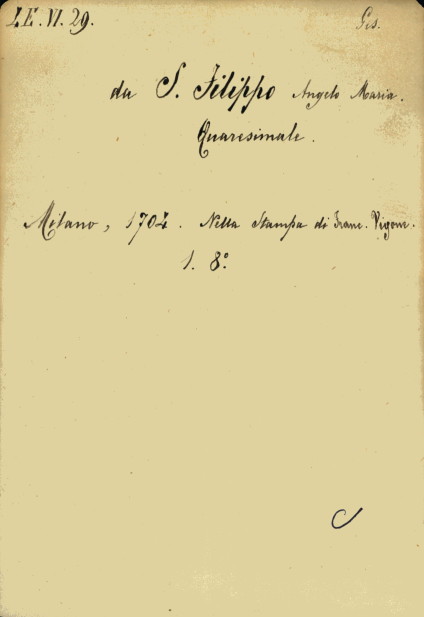 LE. VI. 29. Gis.
da S. Filippo Angelo Maria.
Quaresimale.
Milano, 1704. Nella Stampa di Franc. Vigone.
1. 8°.
C